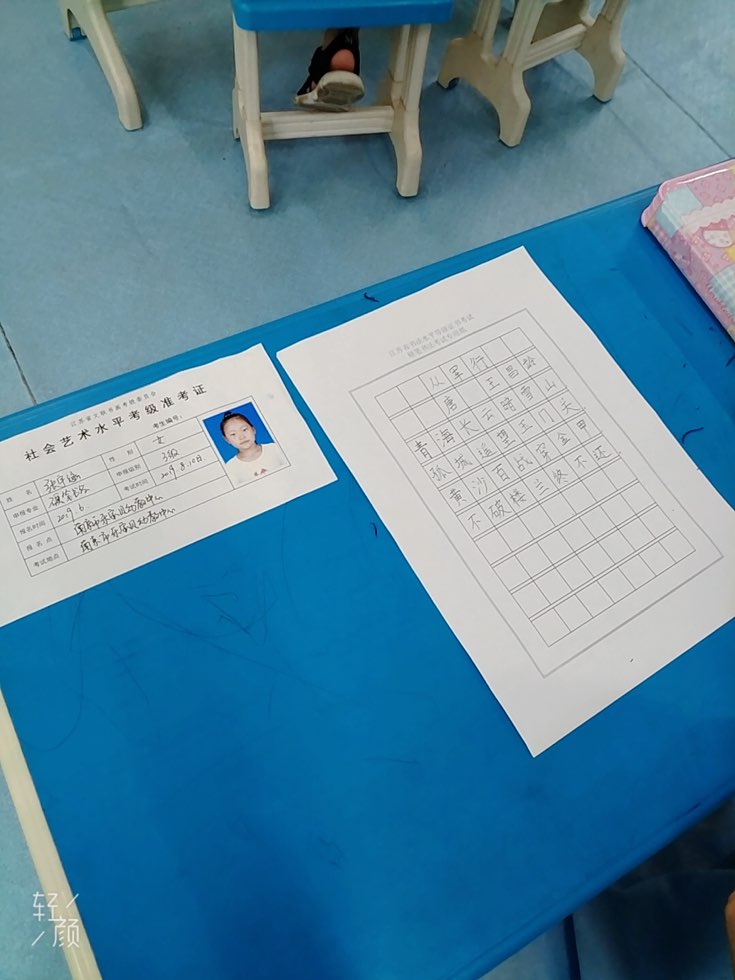 江苏省文联书画考级委员会
社会艺术水平考级准考证
考生编号:
姓 名
性 别 女
申报专业 硬笔书法
申报级别 3级
报名时间 2019.6.
考试时间 2019.8.10日.
报 名 点
考试地点
江苏省书法水平等级证书考试
硬笔书法考试专用纸
从军行
唐 王昌龄
青海长云暗雪山
孤城遥望玉门关,
黄沙百战穿金甲
不破楼兰终不还.
轻
颜